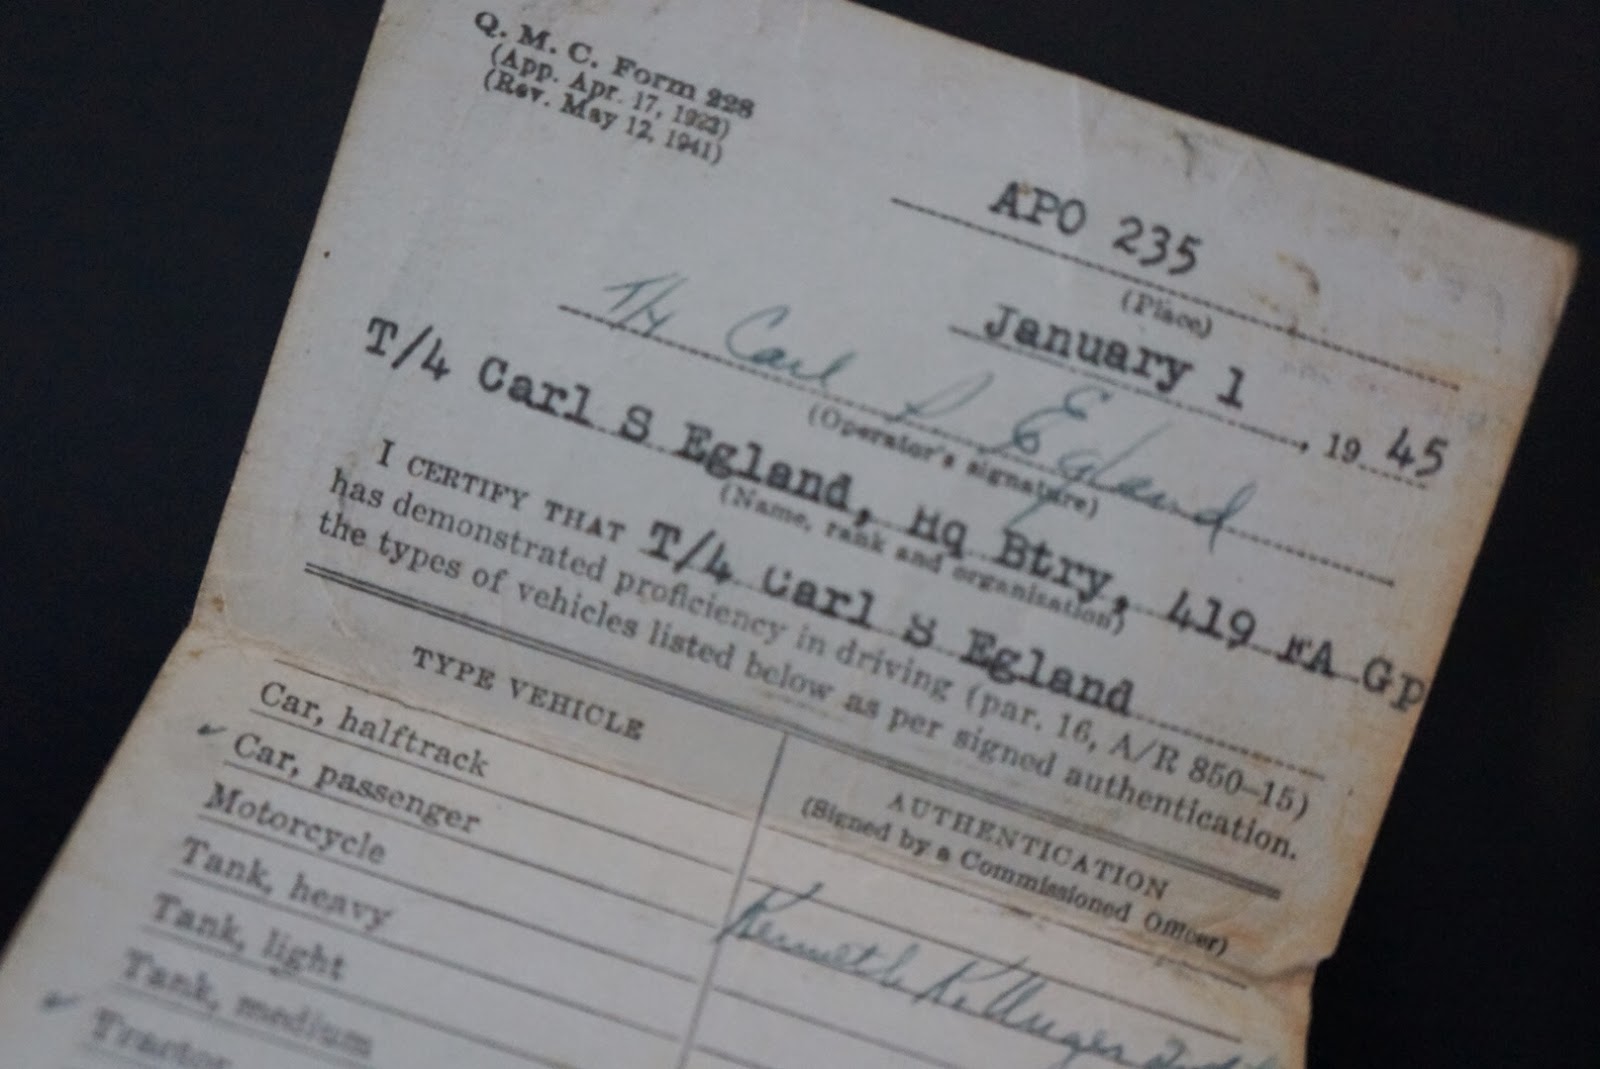 Q. M. C. Form 228
(App. Apr. 17, 1923)
(Rev. May 12, 1941)
APO 235
(Place)
January 1, 1945
T/4 Carl S Egland
(Operator's signature)
T/4 Carl S Egland, Hq Btry, 419 FA Gp
(Name, rank and organization)
I CERTIFY THAT T/4 Carl S Egland
has demonstrated proficiency in driving (par. 16, A/R 850–15)
the types of vehicles listed below as per signed authentication.
TYPE VEHICLE
AUTHENTICATION
(Signed by a Commissioned Officer)
Car, halftrack
✓ Car, passenger
Kenneth
Motorcycle
Tank, heavy
Tank, light
Tank, medium
✓ Tractor